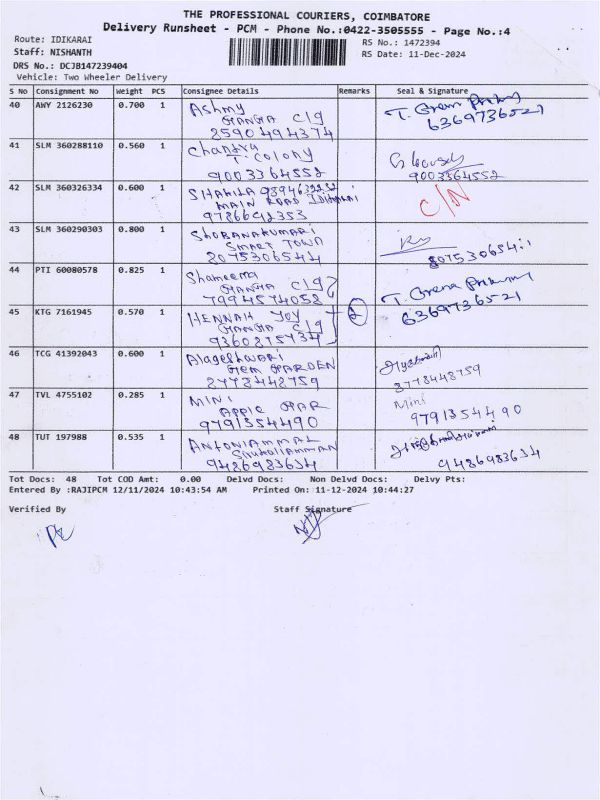 THE PROFESSIONAL COURIERS, COIMBATORE
Delivery Runsheet - PCM - Phone No.:0422-3505555 - Page No.:4
Route: IDIKARAI
RS No.: 1472394
Staff: NISHANTH
RS Date: 11-Dec-2024
DRS No.: DCJB147239404
Vehicle: Two Wheeler Delivery
S No Consignment No Weight PCS Consignee Details Remarks Seal & Signature
40 AWY 2126230 0.700 1 Ashmy
GANGA C/g
8590494374
6369736521
41 SLM 360288110 0.560 1 Chandra
T. COLONY
9003364552
9003364552
42 SLM 360326334 0.600 1 SHAKILA
MAIN ROAD IDIKARAI
9786692353
C/N
43 SLM 360290303 0.800 1 SHOBANAKUMARI
SMART TOWN
8075306544
44 PTI 60080578 0.825 1 Shameema
GANGA C/g
7994574058
6369736521
45 KTG 7161945 0.570 1 HENNAH JOY
GANGA C/g
9360875734
2
46 TCG 41392043 0.600 1 Alageshwari
Gem GARDEN
47 TVL 4755102 0.285 1 MINI
APPLE
9791354490
Mini
9791354490
48 TUT 197988 0.535 1 ANTONIAMMAL
9486983634
9486983634
Tot Docs: 48 Tot COD Amt: 0.00 Delvd Docs: Non Delvd Docs: Delvy Pts:
Entered By :RAJIPCM 12/11/2024 10:43:54 AM Printed On: 11-12-2024 10:44:27
Verified By Staff Signature